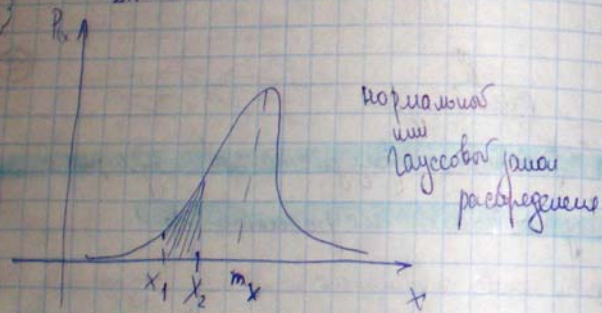 P
нормальный
или
Гауссовый закон
распределение
x₁ x₂ mₓ x